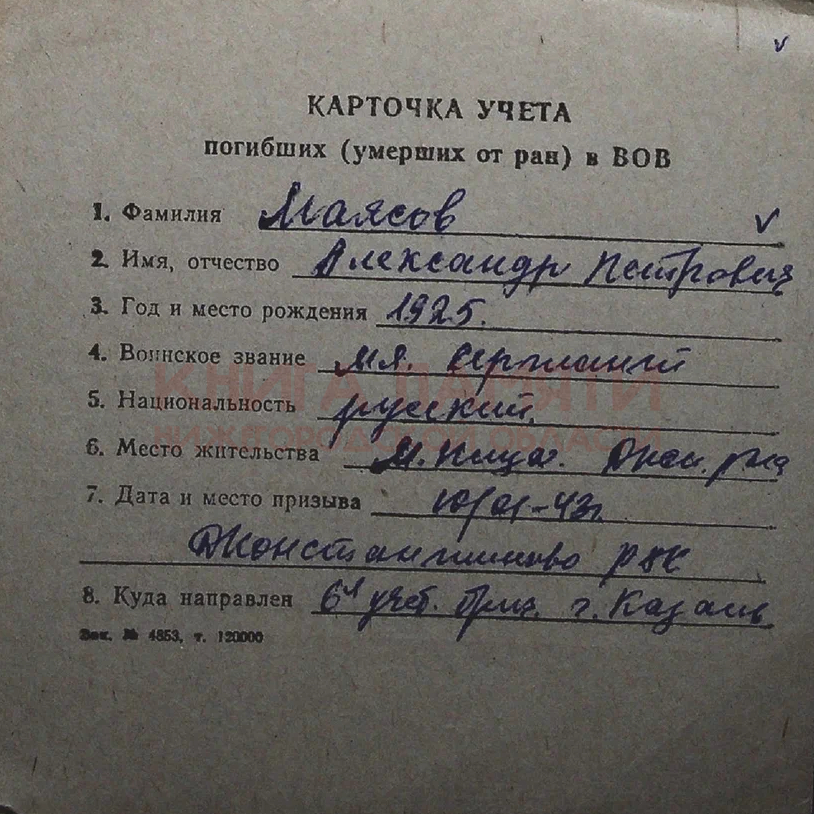 КАРТОЧКА УЧЕТА
погибших (умерших от ран) в ВОВ
1. Фамилия Маясов
2. Имя, отчество Александр Петрович
3. Год и место рождения 1925.
4. Воинское звание мл. сержант
КНИГА ПАМЯТИ
5. Национальность русский.
НИЖЕГОРОДСКОЙ ОБЛАСТИ
6. Место жительства
7. Дата и место призыва 10/01-43г.
РВК
8. Куда направлен 6 учеб. бриг. г. Казань
Зак. № 4853, т. 120000